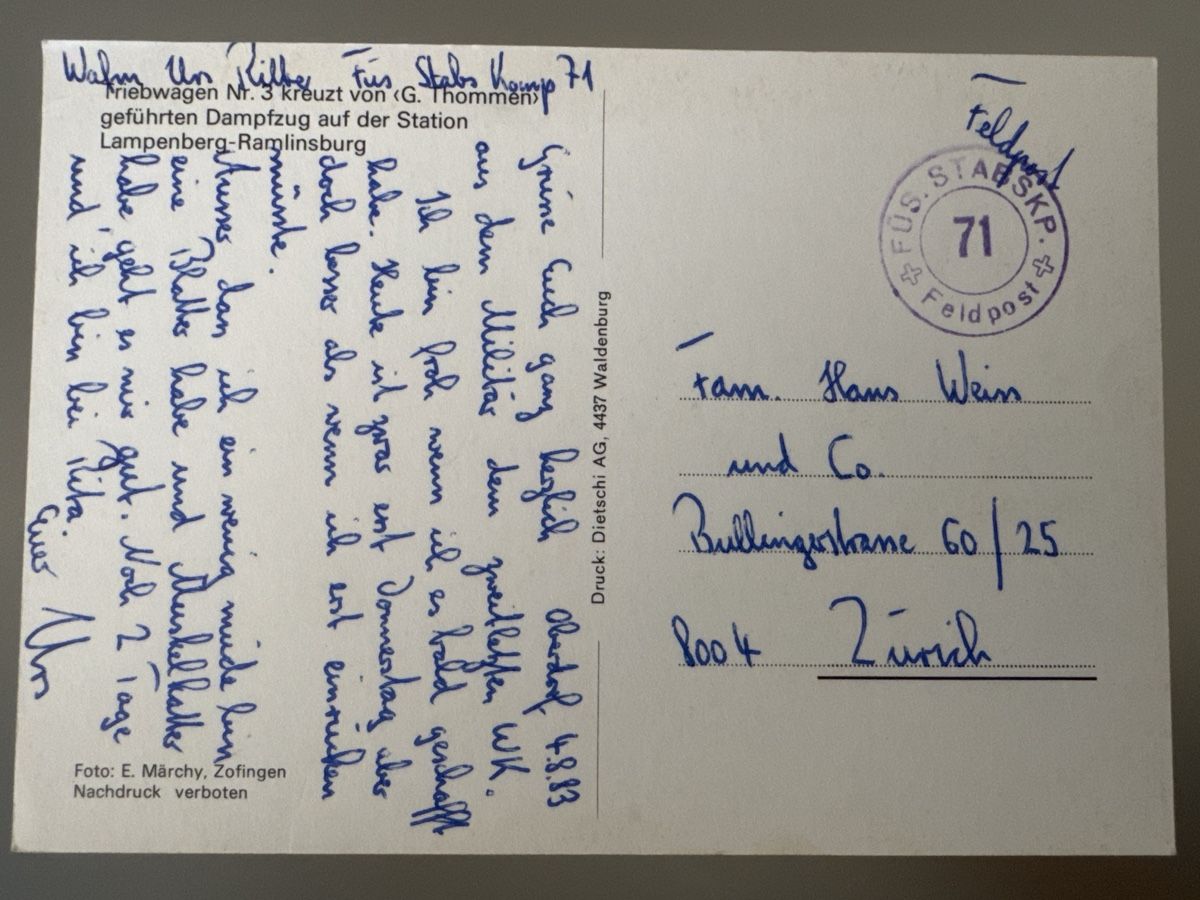 Wafm Urs Füs Stabs Komp 71
Triebwagen Nr. 3 kreuzt von ‹G. Thommen›
geführten Dampfzug auf der Station
Lampenberg-Ramlinsburg
Oberdorf 4.8.83
Grüsse Euch ganz herzlich
aus dem Militär dem zweitletzten WK.
Ich bin froh wenn ich es bald geschafft
habe. Heute ist zwar erst Donnerstag aber
doch besser als wenn ich erst einrücken
müsste.
Ausser das ich ein wenig müde bin
eine Blatter habe und Muskelkatter
habe, geht es mir gut. Noch 2 Tage
und ich bin bei Rita.
Euer Urs
Foto: E. Märchy, Zofingen
Nachdruck verboten
Druck: Dietschi AG, 4437 Waldenburg
Feldpost
FÜS. STABSKP.
71
Feldpost
Fam. Hans Weiss
und Co.
Bullingerstrasse 60/25
8004 Zürich